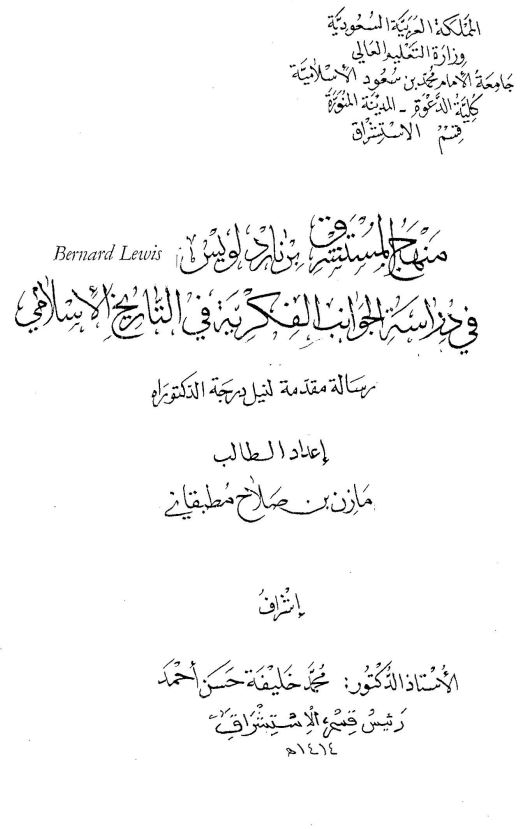 المملكة العربية السعودية
وزارة التعليم العالي
جامعة الإمام محمد بن سعود الإسلامية
كلية الدعوة - المدينة المنورة
قسم الاستشراق
منهاج المستشرق برنارد لويس Bernard Lewis
في دراسة الجوانب الفكرية في التاريخ الإسلامي
رسالة مقدمة لنيل درجة الدكتوراه
إعداد الطالب
مازن بن صلاح مطبقاني
إشراف
الأستاذ الدكتور: محمد خليفة حسن أحمد
رئيس قسم الاستشراق
١٤١٤هـ